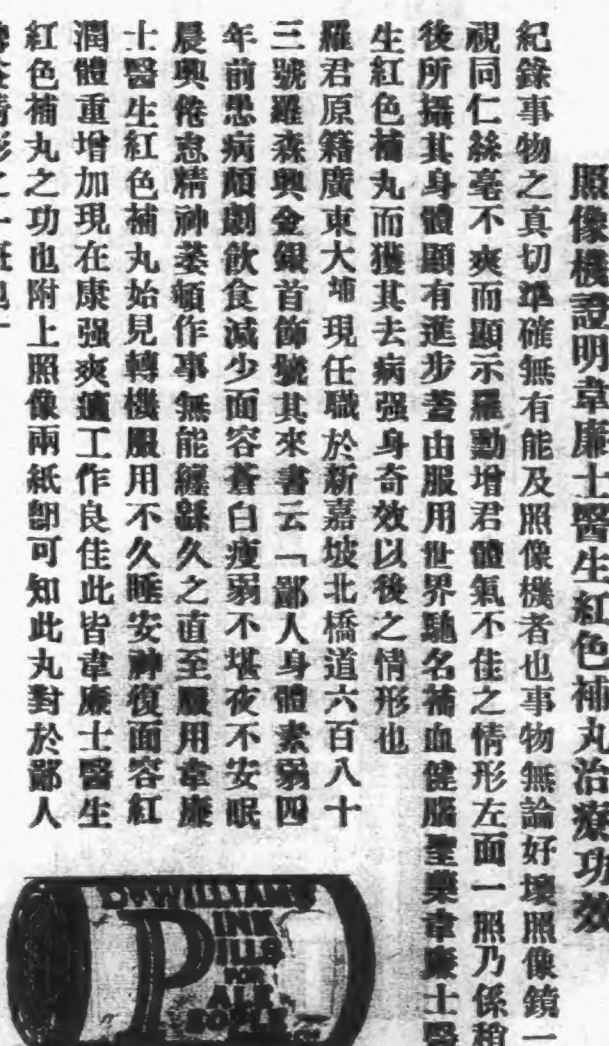 照像機證明韋廉士醫生紅色補丸治療功效
紀錄事物之真切準確無有能及照像機者也事物無論好壞照像鏡一
視同仁絲毫不爽而顯示羅勳增君體氣不佳之情形左面一照乃係稍
後所攝其身體顯有進步蓋由服用世界馳名補血健腦聖藥韋廉士醫
生紅色補丸而獲其去病强身奇效以後之情形也
羅君原籍廣東大埔現任職於新嘉坡北橋道六百八十
三號羅森興金銀首飾號其來書云「鄙人身體素弱四
年前患病頗劇飲食減少面容蒼白瘦弱不堪夜不安眠
晨興倦怠精神萎頓作事無能纏綿久之直至服用韋廉
士醫生紅色補丸始見轉機服用不久睡安神復面容紅
潤體重增加現在康强爽健工作良佳此皆韋廉士醫生
紅色補丸之功也附上照像兩紙卽可知此丸對於鄙人
DR WILLIAMS
PINK
PILLS
FOR
PALE
PEOPLE